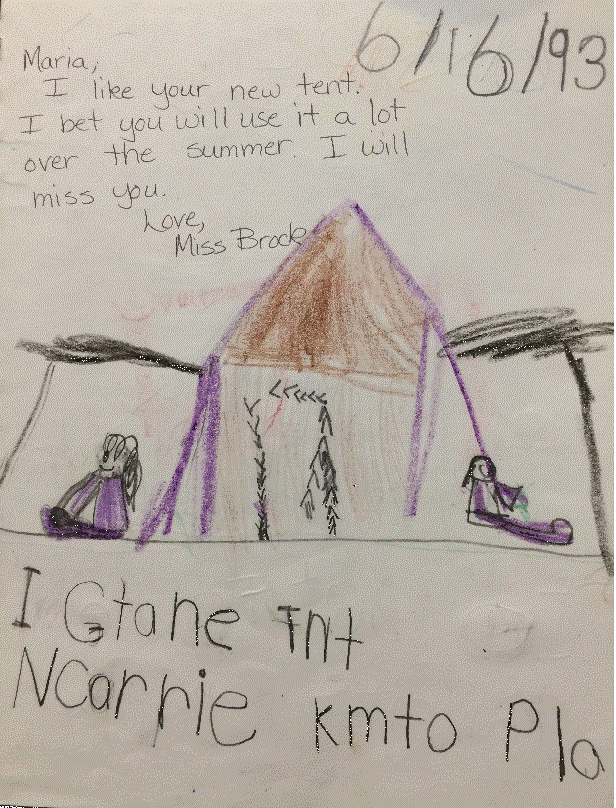 6/16/93
Maria,
I like your new tent.
I bet you will use it a lot
over the summer I will
miss you.
Love,
Miss Brock
I Gtane Tnt
NCarrie kmto Pla